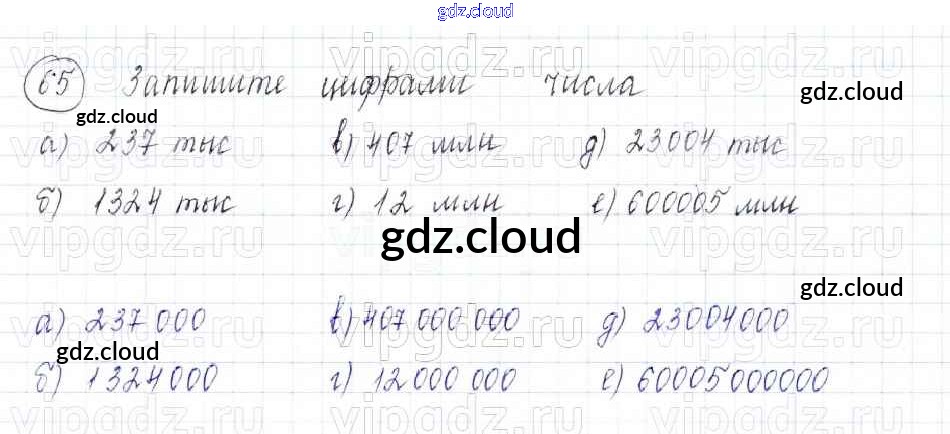 gdz.cloud
65 Запишите цифрами числа
gdz.cloud
gdz.cloud
а) 237 тыс в) 407 млн д) 23004 тыс
б) 1324 тыс г) 12 млн е) 600005 млн
gdz.cloud
gdz.cloud
а) 237 000 в) 407 000 000 д) 23004000
gdz.cloud
б) 1324000 г) 12 000 000 е) 60005000000
gdz.cloud
vipgdz.ru